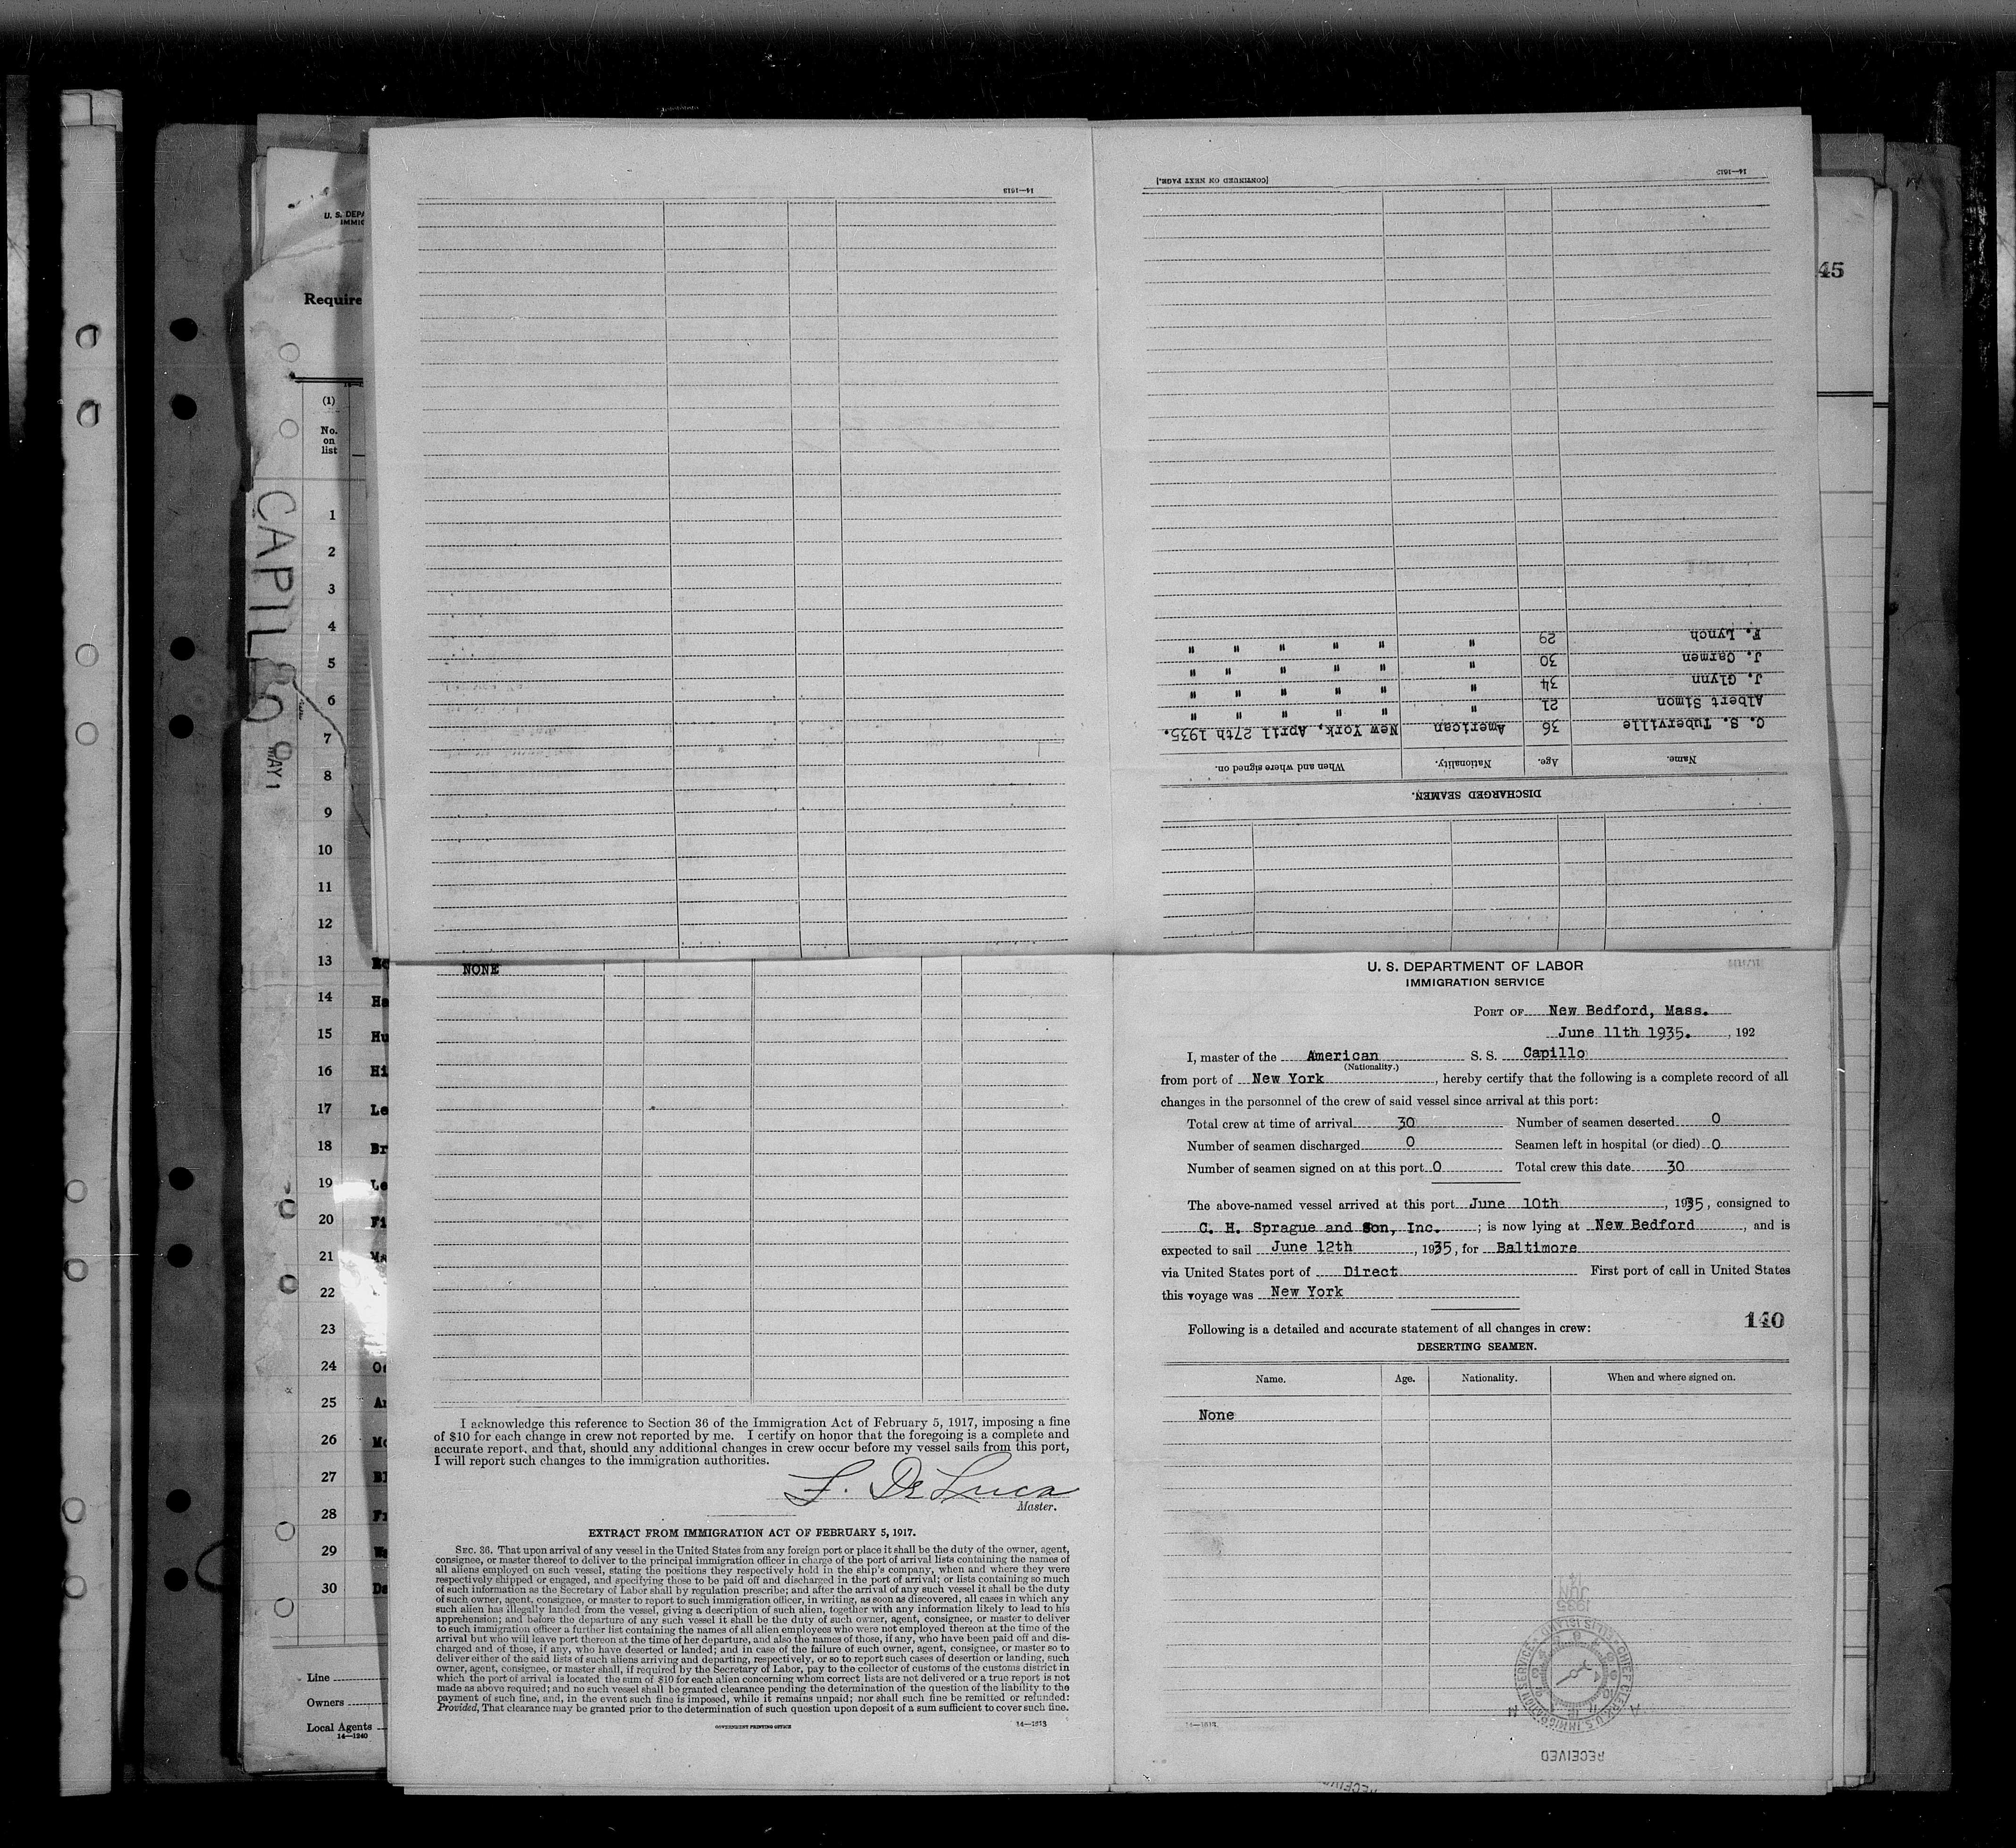 U. S. DEPA
IMMIG
Require
(1)
No.
on
list
CAPILLO
MAY 1
1
2
3
4
5
6
7
8
9
10
11
12
13
14 Ha
15 Hu
16 Hi
17 Le
18 Br
19 Le
20 Fi
21 Ma
22
23
24
25
26
27
28
29
30 Da
Line
Owners
Local Agents
14—1240
45
14—1613
[CONTINUED ON NEXT PAGE.]
14—1613
DISCHARGED SEAMEN.
Name. Age. Nationality. When and where signed on.
C. S. Tuberville 36 American New York, April 27th 1935.
Albert Simon 21 " " " " " "
J. Glynn 34 " " " " " "
J. Carmen 30 " " " " " "
F. Lynch 29 " " " " " "
NONE
I acknowledge this reference to Section 36 of the Immigration Act of February 5, 1917, imposing a fine
of $10 for each change in crew not reported by me. I certify on honor that the foregoing is a complete and
accurate report, and that, should any additional changes in crew occur before my vessel sails from this port,
I will report such changes to the immigration authorities.
F. De Luca
Master.
EXTRACT FROM IMMIGRATION ACT OF FEBRUARY 5, 1917.
SEC. 36. That upon arrival of any vessel in the United States from any foreign port or place it shall be the duty of the owner, agent,
consignee, or master thereof to deliver to the principal immigration officer in charge of the port of arrival lists containing the names of
all aliens employed on such vessel, stating the positions they respectively hold in the ship's company, when and where they were
respectively shipped or engaged, and specifying those to be paid off and discharged in the port of arrival; or lists containing so much
of such information as the Secretary of Labor shall by regulation prescribe; and after the arrival of any such vessel it shall be the duty
of such owner, agent, consignee, or master to report to such immigration officer, in writing, as soon as discovered, all cases in which any
such alien has illegally landed from the vessel, giving a description of such alien, together with any information likely to lead to his
apprehension; and before the departure of any such vessel it shall be the duty of such owner, agent, consignee, or master to deliver
to such immigration officer a further list containing the names of all alien employees who were not employed thereon at the time of the
arrival but who will leave port thereon at the time of her departure, and also the names of those, if any, who have been paid off and dis-
charged and of those, if any, who have deserted or landed; and in case of the failure of such owner, agent, consignee, or master so to
deliver either of the said lists of such aliens arriving and departing, respectively, or so to report such cases of desertion or landing, such
owner, agent, consignee, or master shall, if required by the Secretary of Labor, pay to the collector of customs of the customs district in
which the port of arrival is located the sum of $10 for each alien concerning whom correct lists are not delivered or a true report is not
made as above required; and no such vessel shall be granted clearance pending the determination of the question of the liability to the
payment of such fine, and, in the event such fine is imposed, while it remains unpaid; nor shall such fine be remitted or refunded:
Provided, That clearance may be granted prior to the determination of such question upon deposit of a sum sufficient to cover such fine.
GOVERNMENT PRINTING OFFICE
14—1613
U. S. DEPARTMENT OF LABOR
IMMIGRATION SERVICE
PORT OF New Bedford, Mass.
June 11th 1935. , 192
I, master of the American S. S. Capillo
(Nationality.)
from port of New York , hereby certify that the following is a complete record of all
changes in the personnel of the crew of said vessel since arrival at this port:
Total crew at time of arrival 30 Number of seamen deserted 0
Number of seamen discharged 0 Seamen left in hospital (or died) 0
Number of seamen signed on at this port 0 Total crew this date 30
The above-named vessel arrived at this port June 10th , 1935, consigned to
C. H. Sprague and Son, Inc. ; is now lying at New Bedford , and is
expected to sail June 12th , 1935, for Baltimore
via United States port of Direct First port of call in United States
this voyage was New York
140
Following is a detailed and accurate statement of all changes in crew:
DESERTING SEAMEN.
Name. Age. Nationality. When and where signed on.
None
14—1613.
RECEIVED
CHIEF CLERK U.S. IMMIGRATION SERVICE ELLIS ISLAND
JUN
1935